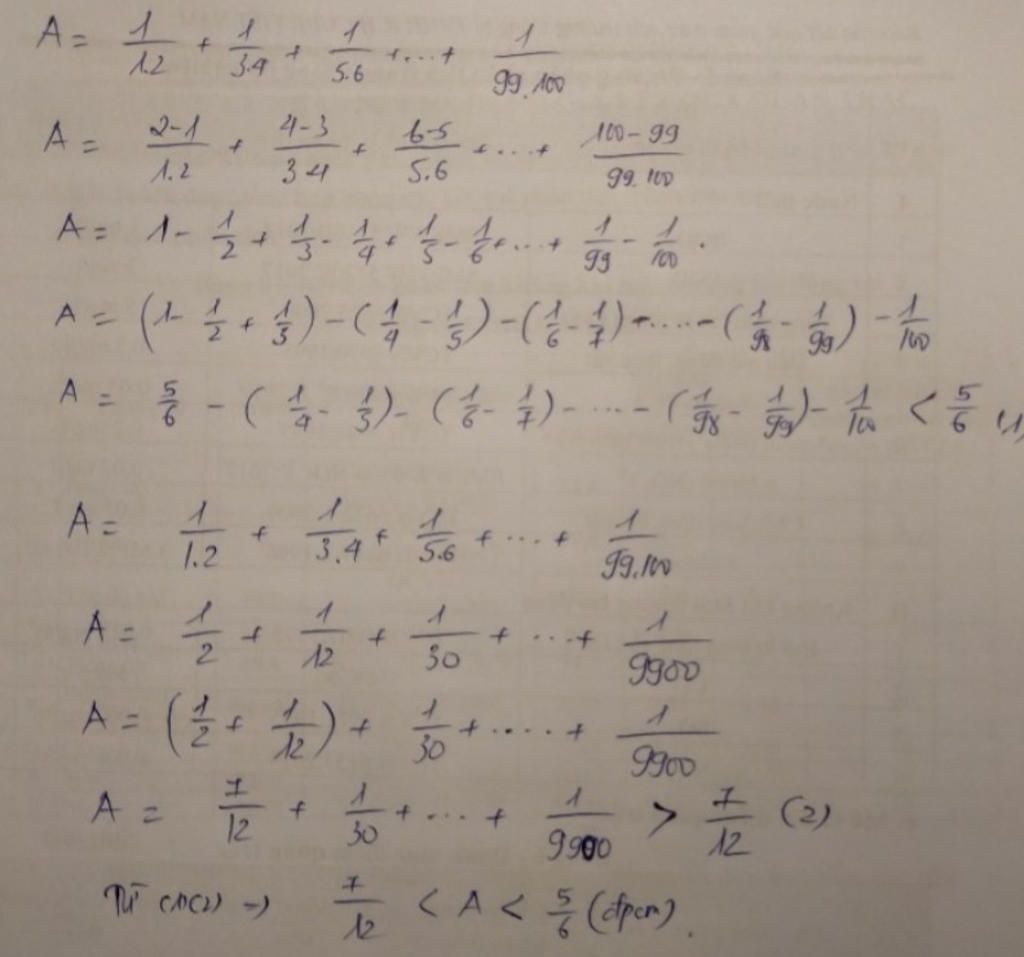 A = 1/1.2 + 1/3.4 + 1/5.6 + ... + 1/99.100
A = 2-1/1.2 + 4-3/3.4 + 6-5/5.6 + ... + 100-99/99.100
A = 1 - 1/2 + 1/3 - 1/4 + 1/5 - 1/6 + ... + 1/99 - 1/100.
A = (1 - 1/2 + 1/3) - (1/4 - 1/5) - (1/6 - 1/7) - ..... - (1/98 - 1/99) - 1/100
A = 5/6 - (1/4 - 1/5) - (1/6 - 1/7) - ... - (1/98 - 1/99) - 1/100 < 5/6 (1)
A = 1/1.2 + 1/3.4 + 1/5.6 + ... + 1/99.100
A = 1/2 + 1/12 + 1/30 + ... + 1/9900
A = (1/2 + 1/12) + 1/30 + .... + 1/9900
A = 7/12 + 1/30 + ... + 1/9900 > 7/12 (2)
Từ (1)(2) => 7/12 < A < 5/6 (đpcm).